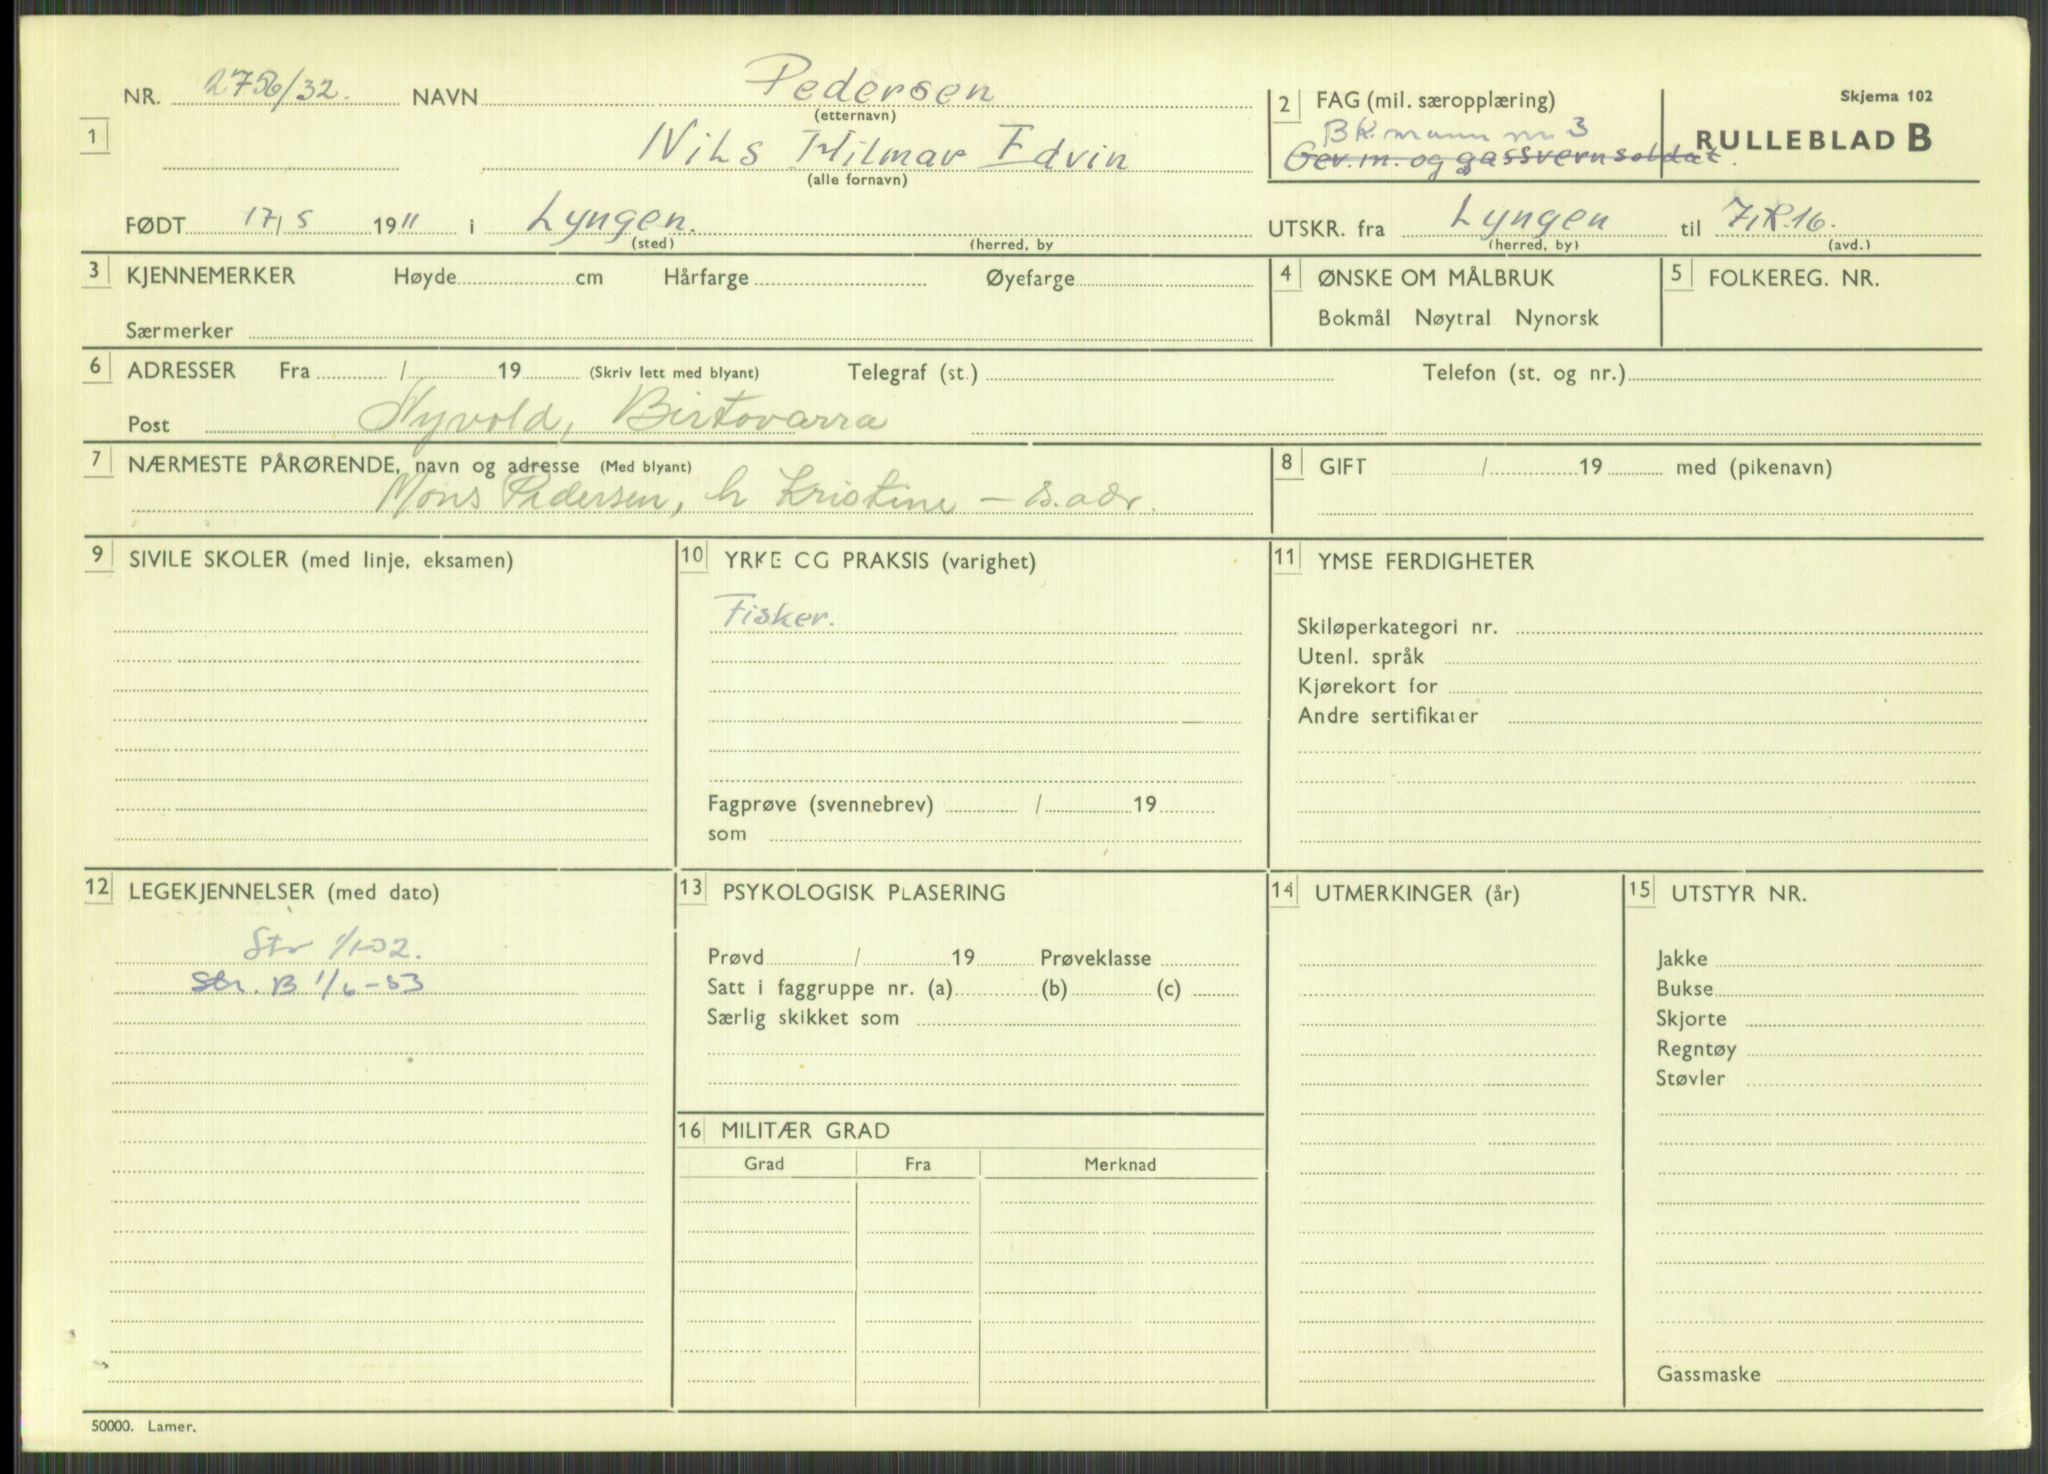 NR. 2756/32. NAVN Pedersen
(etternavn)
1
Nils Hilmar Edvin
(alle fornavn)
2 FAG (mil. særopplæring)
BK.mann nr. 3
Gev.m. og gassvernsoldat.
Skjema 102
RULLEBLAD B
FØDT 17/5 1911 i Lyngen. UTSKR. fra Lyngen til I.R.16.
(sted) (herred, by (herred, by) (avd.)
3 KJENNEMERKER Høyde cm Hårfarge Øyefarge
Særmerker
4 ØNSKE OM MÅLBRUK
Bokmål Nøytral Nynorsk
5 FOLKEREG. NR.
6 ADRESSER Fra / 19 (Skriv lett med blyant) Telegraf (st.) Telefon (st. og nr.)
Post Nyvold, Birtovarra
7 NÆRMESTE PÅRØRENDE, navn og adresse (Med blyant)
Mons Pedersen, h Kristine – s. adr.
8 GIFT / 19 med (pikenavn)
9 SIVILE SKOLER (med linje, eksamen)
10 YRKE OG PRAKSIS (varighet)
Fisker.
Fagprøve (svennebrev) / 19
som
11 YMSE FERDIGHETER
Skiløperkategori nr.
Utenl. språk
Kjørekort for
Andre sertifikater
12 LEGEKJENNELSER (med dato)
Str 1/1-32.
Str. B 1/6-53
13 PSYKOLOGISK PLASERING
Prøvd / 19 Prøveklasse
Satt i faggruppe nr. (a) (b) (c)
Særlig skikket som
14 UTMERKINGER (år)
15 UTSTYR NR.
Jakke
Bukse
Skjorte
Regntøy
Støvler
Gassmaske
16 MILITÆR GRAD
Grad Fra Merknad
50000. Lamer.